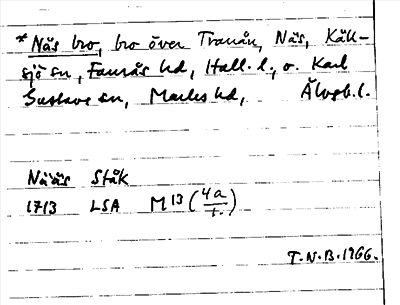 *Näs bro, bro över Tranån, Näs, Käll-
sjö sn, Faurås hd, Hall. l., o. Karl
Gustavs sn, Marks hd, Älvsb. l.
Nääs Ståk
1713 LSA M13 (4a/1.)
T.N.B. 1966.